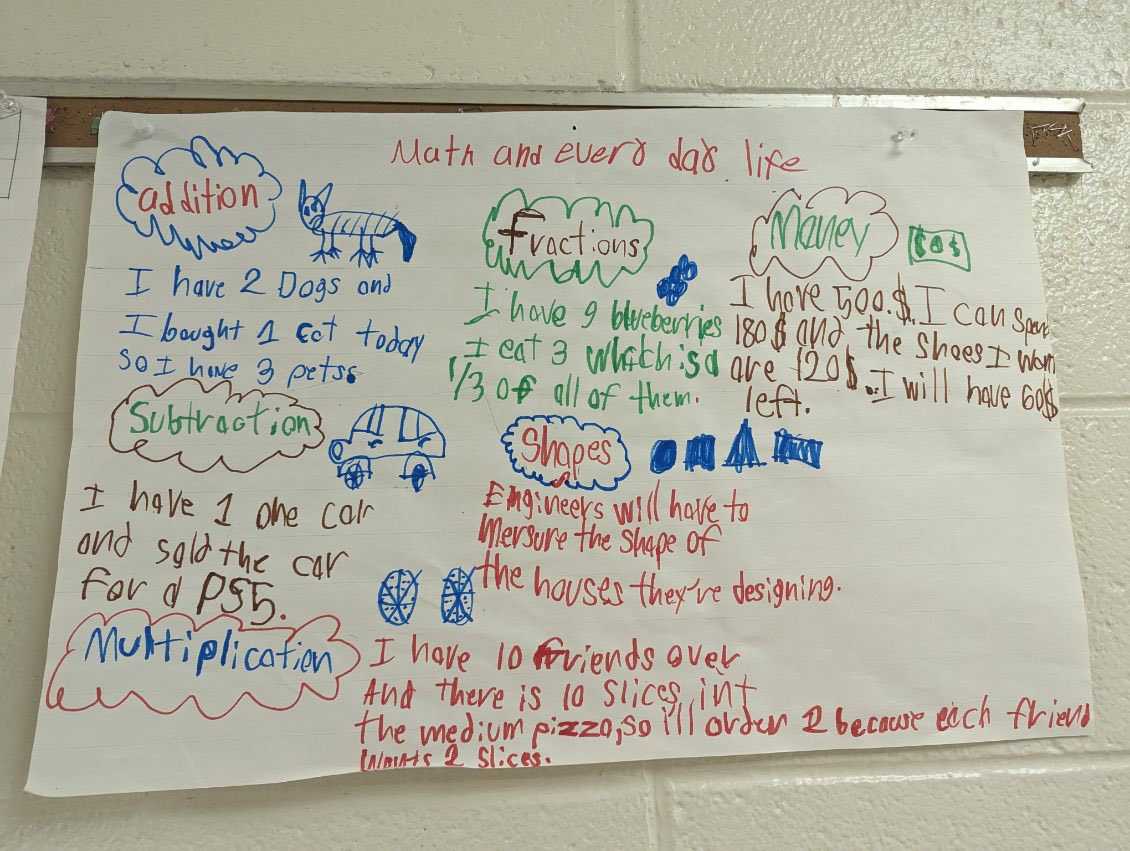 Math and every day life
addition
I have 2 Dogs and
I bought 1 cat today
so I have 3 pets.
Subtraction
I have 1 one car
and sold the car
for a PS5.
Fractions
I have 9 blueberries
I eat 3 which is a
1/3 of all of them.
Money
$
I have 500.$. I can spend
180$ and the shoes I want
are 120$.. I will have 60$
left.
Shapes
Engineers will have to
Mersure the shape of
the houses they're designing.
Multiplication
I have 10 friends over
And there is 10 slices int
the medium pizza, so i'll order 2 because each friend
wants 2 slices.